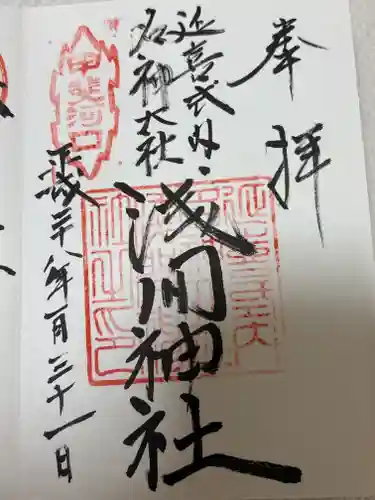 奉拝
延喜式内
名神大社
浅間神社
平成二十八年一月三十一日
甲斐河口